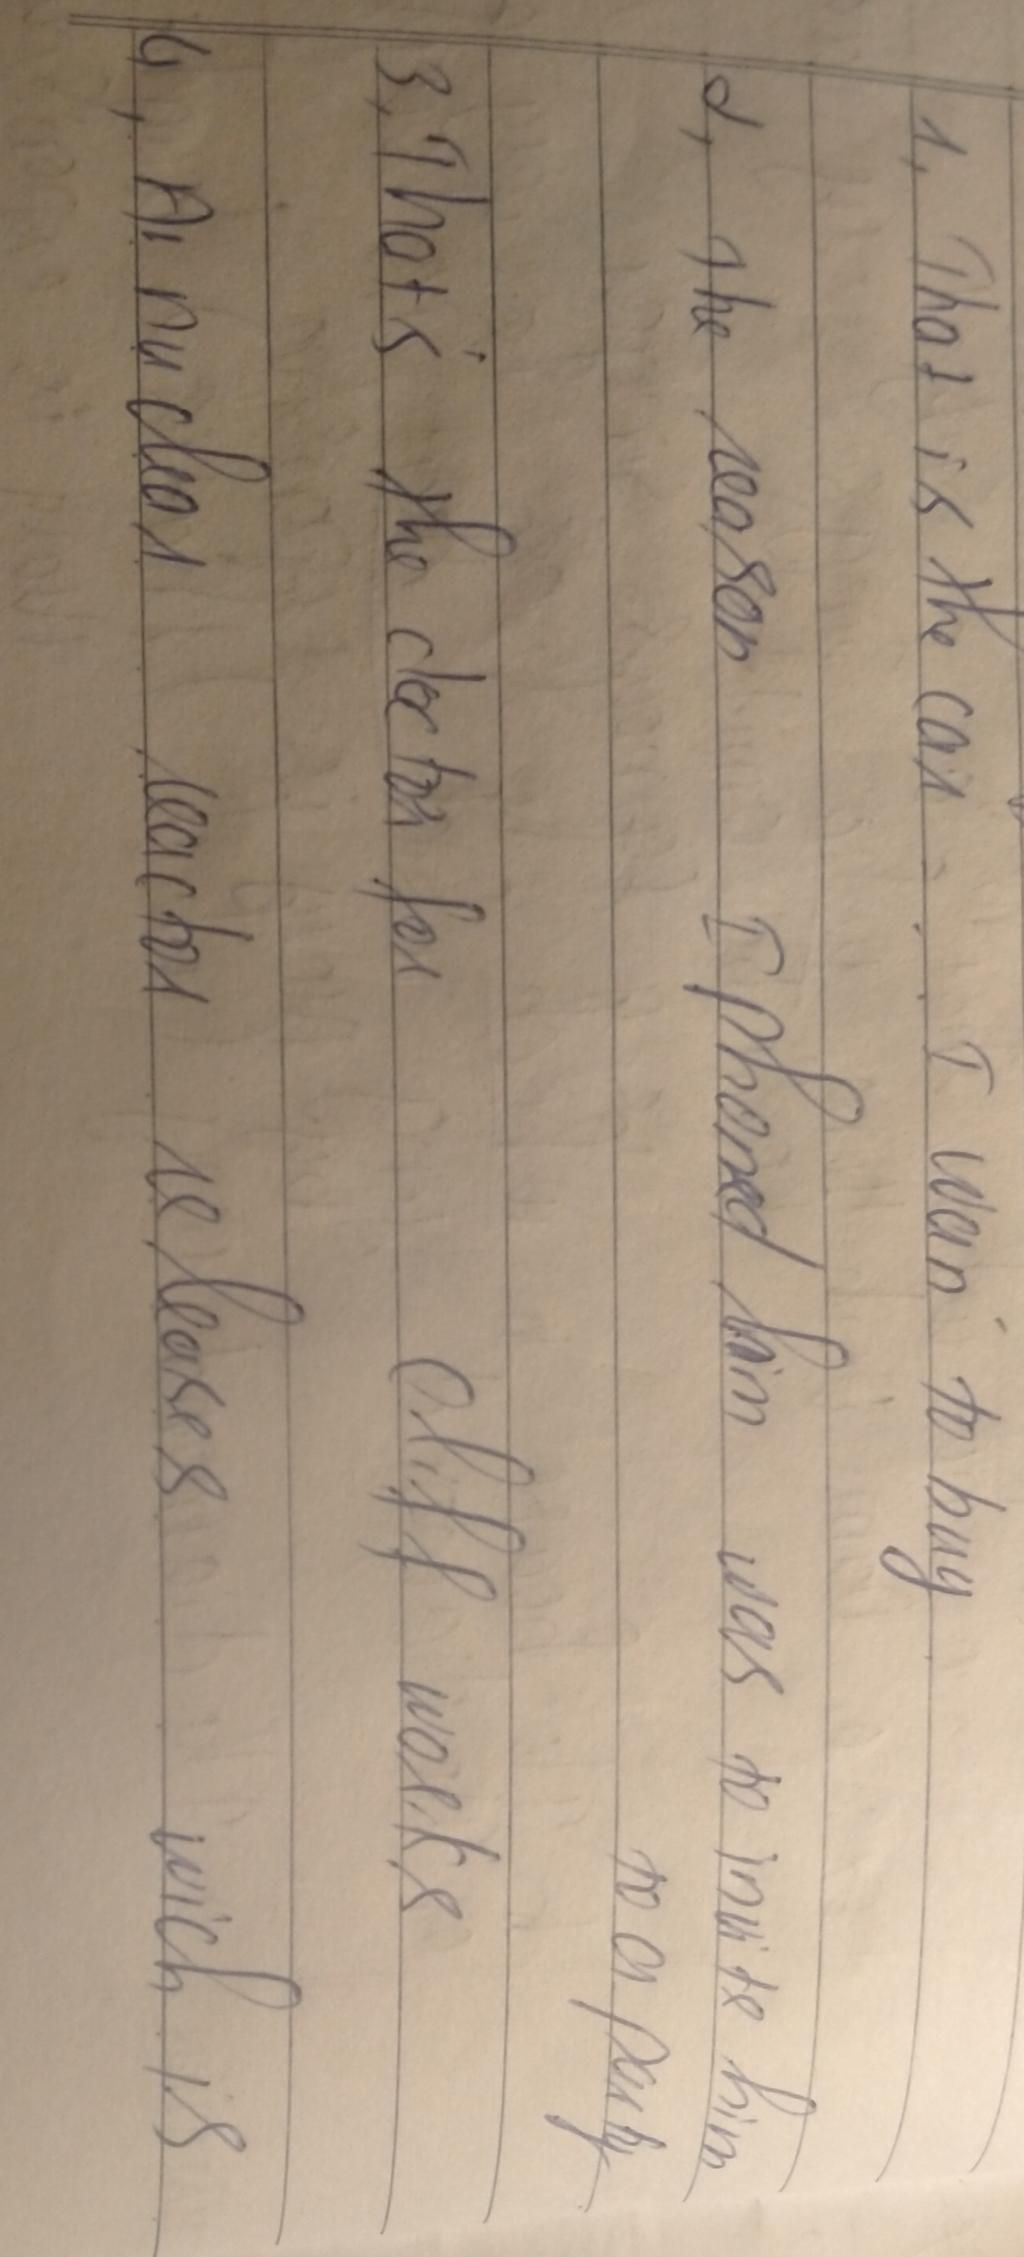 1, That is the car I wan't to buy
2, The reason I phoned him was to invite him
to a party
3, That's the doctor for Cliff works
4, A nuclear reactor releases wich is